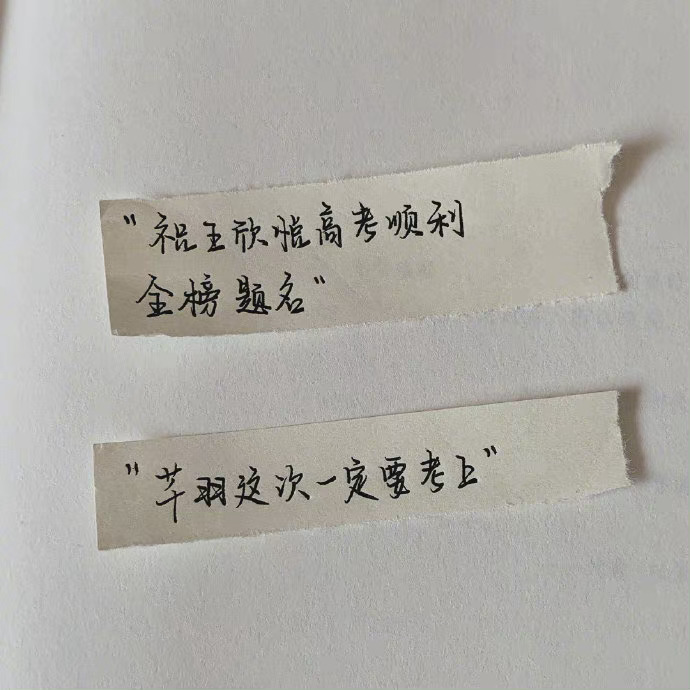 "祝王欣悦高考顺利
金榜题名"
"芊羽这次一定要考上"